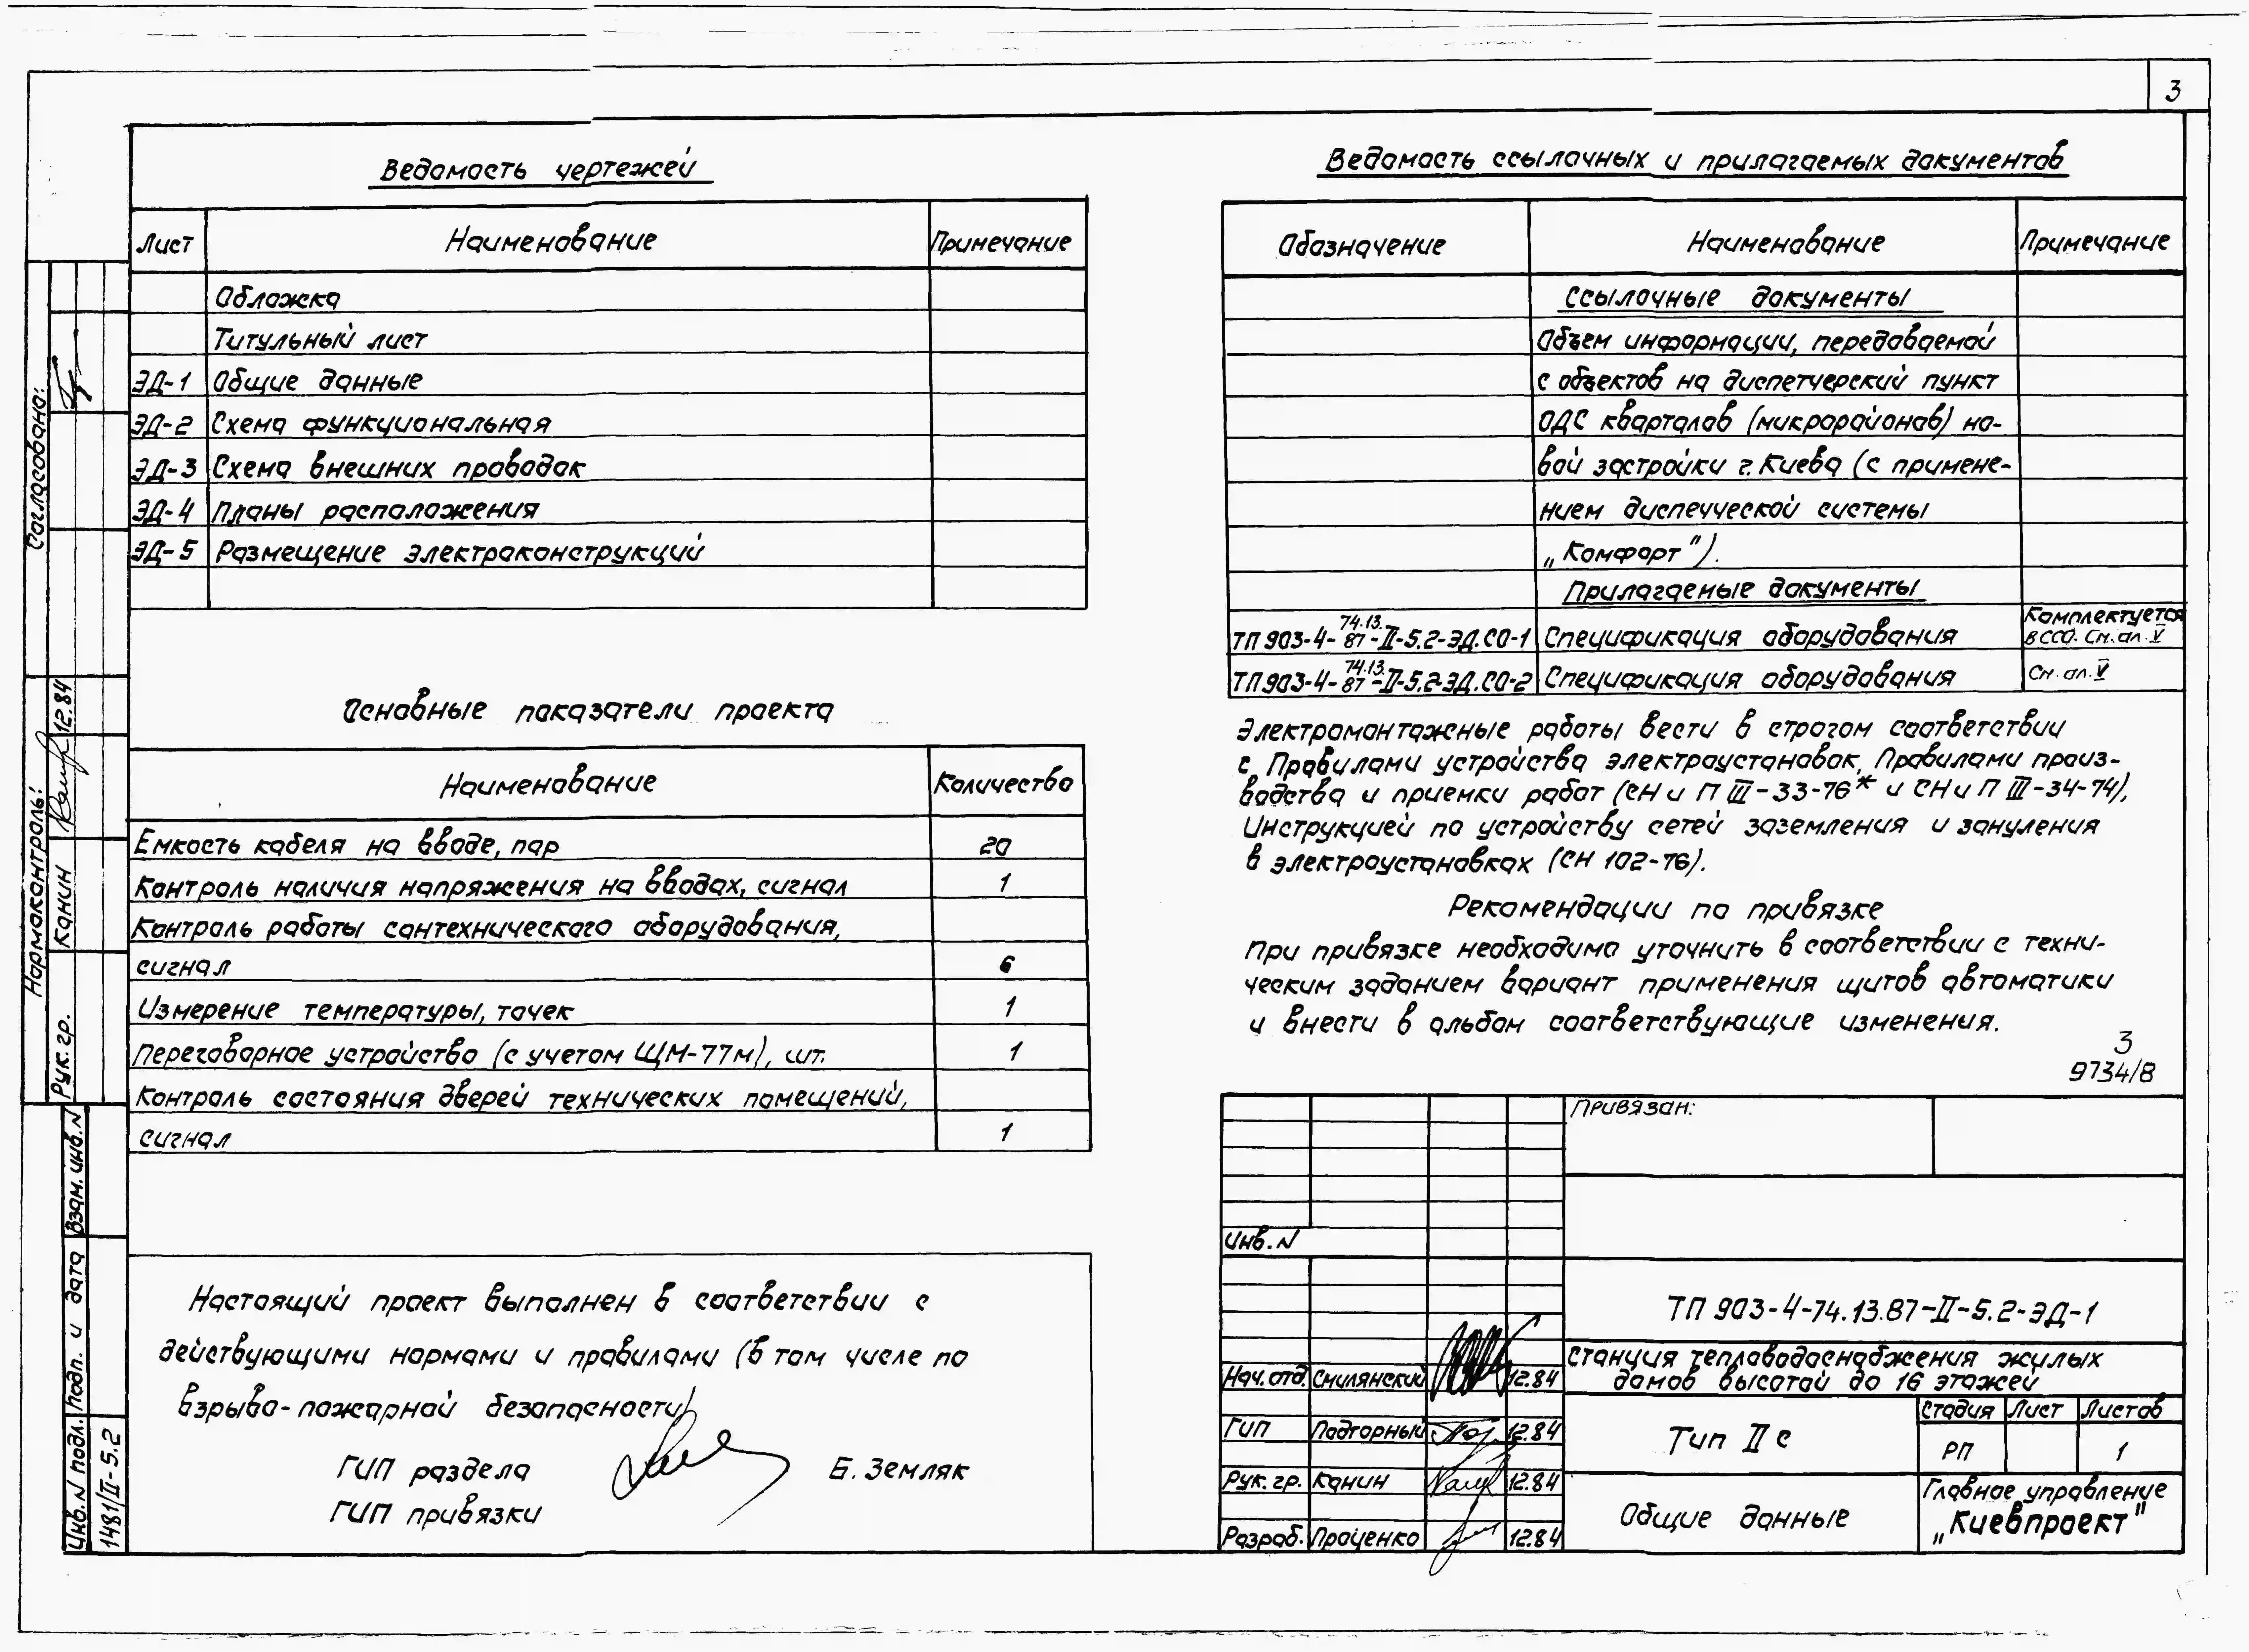 3
Ведомость чертежей
Лист Наименование Примечание
Обложка
Титульный лист
ЭД-1 Общие данные
ЭД-2 Схема функциональная
ЭД-3 Схема внешних проводок
ЭД-4 Планы расположения
ЭД-5 Размещение электроконструкций
Основные показатели проекта
Наименование Количество
Емкость кабеля на вводе, пар 20
Контроль наличия напряжения на вводах, сигнал 1
Контроль работы сантехнического оборудования,
сигнал 6
Измерение температуры, точек 1
Переговорное устройство (с учетом ЩМ-77м), шт. 1
Контроль состояния дверей технических помещений,
сигнал 1
Настоящий проект выполнен в соответствии с
действующими нормами и правилами (в том числе по
взрыво-пожарной безопасности)
ГИП раздела Б. Земляк
ГИП привязки
Ведомость ссылочных и прилагаемых документов
Обозначение Наименование Примечание
Ссылочные документы
Объем информации, передаваемой
с объектов на диспетчерский пункт
ОДС кварталов (микрорайонов) но-
вой застройки г. Киева (с примене-
нием диспечческой системы
„Комфорт").
Прилагаемые документы
ТП 903-4-74.13.87-II-5.2-ЭД.СО-1 Спецификация оборудования Комплектуется
в ССО. См. ал. V
ТП 903-4-74.13.87-II-5.2-ЭД.СО-2 Спецификация оборудования См. ал. V
Электромонтажные работы вести в строгом соответствии
с Правилами устройства электроустановок, Правилами произ-
водства и приемки работ (СН и П III-33-76* и СН и П III-34-74),
Инструкцией по устройству сетей заземления и зануления
в электроустановках (СН 102-76).
Рекомендации по привязке
При привязке необходимо уточнить в соответствии с техни-
ческим заданием вариант применения щитов автоматики
и внести в альбом соответствующие изменения.
3
9734/8
Привязан:
Инв. N
ТП 903-4-74.13.87-II-5.2-ЭД-1
Станция тепловодоснабжения жилых
домов высотой до 16 этажей
Нач. отд. Смилянский 12.84
ГИП Подгорный 12.84
Рук. гр. Канин 12.84
Разраб. Проценко 12.84
Тип II с
Стадия Лист Листов
РП 1
Общие данные
Главное управление
„Киевпроект"
Согласовано:
Нормоконтроль:
Рук. гр. Канин 12.84
Взам. инв. N
Подп. и дата
Инв. N подл. 1481/II-5.2